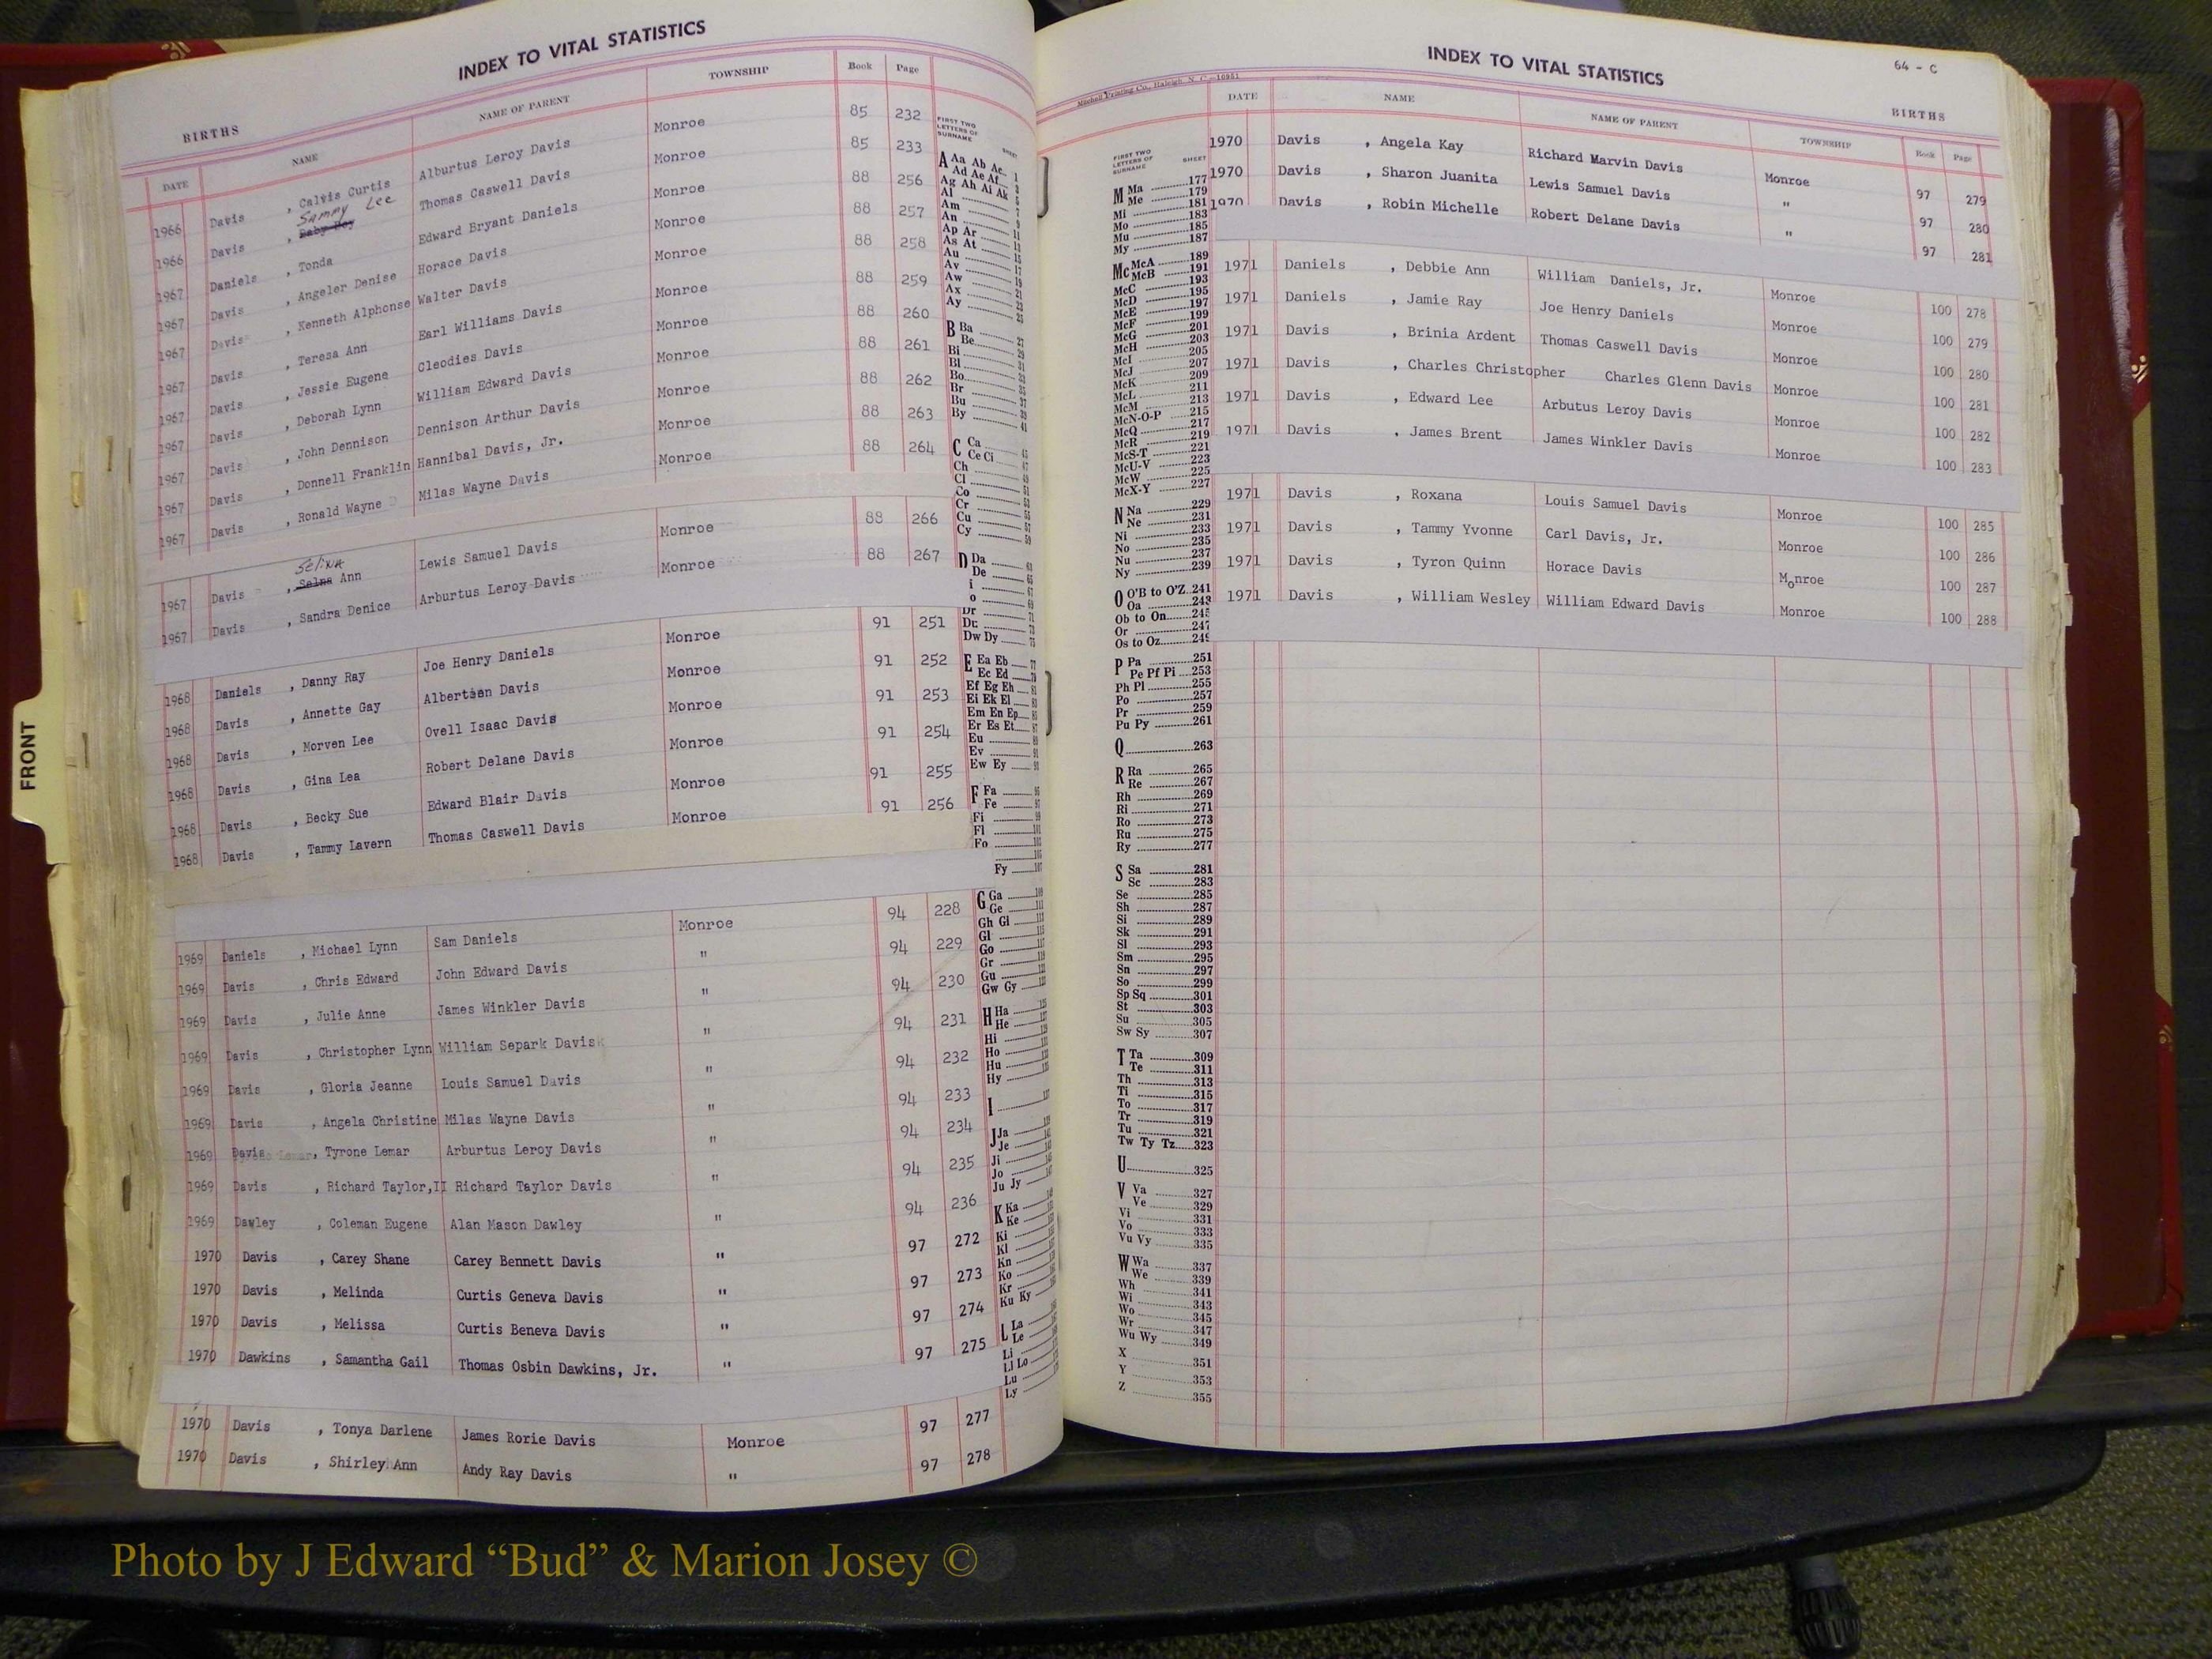 INDEX TO VITAL STATISTICS
BIRTHS
DATE NAME NAME OF PARENT TOWNSHIP Book Page
1966 Davis , Calvis Curtis Alburtus Leroy Davis Monroe 85 232
Sammy Lee
1966 Davis , Baby Boy Thomas Caswell Davis Monroe 85 233
1967 Daniels , Tonda Edward Bryant Daniels Monroe 88 256
1967 Davis , Angeler Denise Horace Davis Monroe 88 257
1967 Davis , Kenneth Alphonse Walter Davis Monroe 88 258
1967 Davis , Teresa Ann Earl Williams Davis Monroe 88 259
1967 Davis , Jessie Eugene Cleodies Davis Monroe 88 260
1967 Davis , Deborah Lynn William Edward Davis Monroe 88 261
1967 Davis , John Dennison Dennison Arthur Davis Monroe 88 262
1967 Davis , Donnell Franklin Hannibal Davis, Jr. Monroe 88 263
1967 Davis , Ronald Wayne Milas Wayne Davis Monroe 88 264
Selina
1967 Davis , Selna Ann Lewis Samuel Davis Monroe 88 266
1967 Davis , Sandra Denice Arburtus Leroy Davis Monroe 88 267
1968 Daniels , Danny Ray Joe Henry Daniels Monroe 91 251
1968 Davis , Annette Gay Alberteen Davis Monroe 91 252
1968 Davis , Morven Lee Ovell Isaac Davis Monroe 91 253
1968 Davis , Gina Lea Robert Delane Davis Monroe 91 254
1968 Davis , Becky Sue Edward Blair Davis Monroe 91 255
1968 Davis , Tammy Lavern Thomas Caswell Davis Monroe 91 256
1969 Daniels , Michael Lynn Sam Daniels Monroe 94 228
1969 Davis , Chris Edward John Edward Davis " 94 229
1969 Davis , Julie Anne James Winkler Davis " 94 230
1969 Davis , Christopher Lynn William Separk Davis " 94 231
1969 Davis , Gloria Jeanne Louis Samuel Davis " 94 232
1969 Davis , Angela Christine Milas Wayne Davis " 94 233
1969 Davis , Tyrone Lemar Arburtus Leroy Davis " 94 234
1969 Davis , Richard Taylor,II Richard Taylor Davis " 94 235
1969 Dawley , Coleman Eugene Alan Mason Dawley " 94 236
1970 Davis , Carey Shane Carey Bennett Davis " 97 272
1970 Davis , Melinda Curtis Geneva Davis " 97 273
1970 Davis , Melissa Curtis Beneva Davis " 97 274
1970 Dawkins , Samantha Gail Thomas Osbin Dawkins, Jr. " 97 275
1970 Davis , Tonya Darlene James Rorie Davis Monroe 97 277
1970 Davis , Shirley Ann Andy Ray Davis " 97 278
FIRST TWO LETTERS OF SURNAME SHEET
A Aa Ab Ac
Ad Ae Af
Ag Ah Ai Ak
Al
Am
An
Ap Ar
As At
Au
Av
Aw
Ax
Ay
B Ba
Be
Bi
Bl
Bo
Br
Bu
By
C Ca
Ce Ci
Ch
Cl
Co
Cr
Cu
Cy
D Da
De
i
o
Dr
Du
Dw Dy
E Ea Eb
Ec Ed
Ef Eg Eh
Ei Ek El
Em En Ep
Er Es Et
Eu
Ev
Ew Ey
F Fa
Fe
Fi
Fl
Fo
Fy
G Ga
Ge
Gh Gi
Gl
Go
Gr
Gu
Gw Gy
H Ha
He
Hi
Ho
Hu
Hy
I
J Ja
Je
Ji
Jo
Ju Jy
K Ka
Ke
Ki
Kl
Kn
Ko
Kr
Ku Ky
L La
Le
Li
Ll Lo
Lu
Ly
FRONT
INDEX TO VITAL STATISTICS
64 - C
Mitchell Printing Co., Raleigh, N. C.—10951
BIRTHS
DATE NAME NAME OF PARENT TOWNSHIP Book Page
1970 Davis , Angela Kay Richard Marvin Davis Monroe 97 279
1970 Davis , Sharon Juanita Lewis Samuel Davis " 97 280
1970 Davis , Robin Michelle Robert Delane Davis " 97 281
1971 Daniels , Debbie Ann William Daniels, Jr. Monroe 100 278
1971 Daniels , Jamie Ray Joe Henry Daniels Monroe 100 279
1971 Davis , Brinia Ardent Thomas Caswell Davis Monroe 100 280
1971 Davis , Charles Christopher Charles Glenn Davis Monroe 100 281
1971 Davis , Edward Lee Arbutus Leroy Davis Monroe 100 282
1971 Davis , James Brent James Winkler Davis Monroe 100 283
1971 Davis , Roxana Louis Samuel Davis Monroe 100 285
1971 Davis , Tammy Yvonne Carl Davis, Jr. Monroe 100 286
1971 Davis , Tyron Quinn Horace Davis Monroe 100 287
1971 Davis , William Wesley William Edward Davis Monroe 100 288
FIRST TWO LETTERS OF SURNAME SHEET
M Ma 177
Me 179
Mi 181
Mo 183
Mu 185
My 187
Mc McA 189
McB 191
McC 193
McD 195
McE 197
McF 199
McG 201
McH 203
McI 205
McJ 207
McK 209
McL 211
McM 213
McN-O-P 215
McQ 217
McR 219
McS-T 221
McU-V 223
McW 225
McX-Y 227
N Na 229
Ne 231
Ni 233
No 235
Nu 237
Ny 239
O O'B to O'Z 241
Oa 243
Ob to On 245
Or 247
Os to Oz 249
P Pa 251
Pe Pf Pi 253
Ph Pl 255
Po 257
Pr 259
Pu Py 261
Q 263
R Ra 265
Re 267
Rh 269
Ri 271
Ro 273
Ru 275
Ry 277
S Sa 281
Sc 283
Se 285
Sh 287
Si 289
Sk 291
Sl 293
Sm 295
Sn 297
So 299
Sp Sq 301
St 303
Su 305
Sw Sy 307
T Ta 309
Te 311
Th 313
Ti 315
To 317
Tr 319
Tu 321
Tw Ty Tz 323
U 325
V Va 327
Ve 329
Vi 331
Vo 333
Vu Vy 335
W Wa 337
We 339
Wh 341
Wi 343
Wo 345
Wr 347
Wu Wy 349
X 351
Y 353
Z 355
Photo by J Edward “Bud” & Marion Josey ©